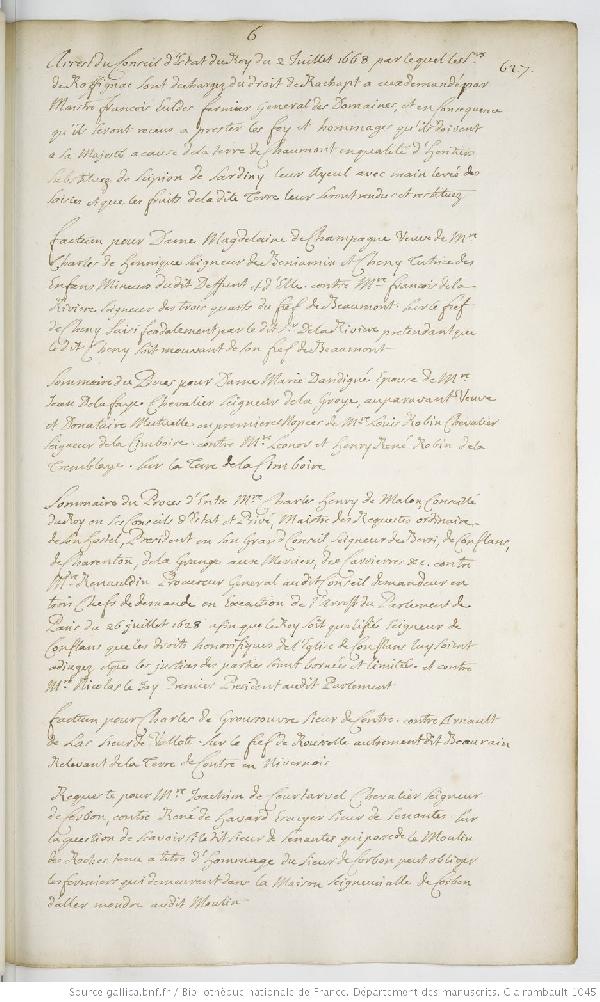 6
627.
Arrest du Conseil d'Estat du Roy du 2 Juillet 1668 par lequel les Srs
de Raffignac sont dechargez du droit de Rachapt a eux demandé par
Maistre francois Euldes fermier General des Domaines, et en consequence
qu'ils seront receus a prester les foy et homages qu'ils doivent
a sa Majesté a cause de la terre de Chaumont en qualité d'heritiers
substituez de Scipion de Sardiny leur ayeul avec main levée des
saisies et que les fruits de la dite Terre leur seront rendus et restituez
factum pour Dame Magdelaine de Champagne Veuve de Mre
Charles de Honnique seigneur de Beniamin et Cheny Tutrice des
Enfans Mineurs dudit Deffunt et d'Elle contre Mre francois de la
Riviere seigneur des trois quarts du fief de Beaumont sur le fief
de Cheny saisi feodalement par le dit Sr de la Riviere pretendant que
le dit Cheny soit mouvant de son fief de Beaumont
Sommaire du Proces pour Dame Marie Dardigné Epouse de Mre
Jean de la faye Chevalier Seigneur de la Groye, auparavant Veuve
et Donataire Mutuelle en premieres Nopces de Mre Louis Robin Chevalier
seigneur de la Cimboire contre Mre Leonor et Henry René Robin de la
Tremblaye sur la Terre de la Cimboire
Sommaire du Proces d'Entre Mre Charles Henry de Malon, Conseille
du Roy en ses Conseils d'Estat et Privé, Maistre des Requestes ordinaire
de son hostel, President en son Grand Conseil seigneur de Berci, de Conflans,
de Charenton, de la Grange aux Merciers, des Carrieres &c. contre
Mre Renauldin Procureur General audit Conseil demandeur en
trois Chefs de demande en Execution de l'arrest du Parlement de
Paris du 26 juillet 1628 afin que le Roy soit qualifié seigneur de
Conflans que les droits honorifiques de l'Eglise de Conflans luy soient
adiugez et que les justices des parties soient bornées et limitées et contre
Mre Nicolas le Jay Premier President audit Parlement
factum pour Charles de Grousouvre sieur de Contre contre Arnault
de Las sieur de Vallot sur le fief de Rouvolle autrement dit Beaurain
Relevant de la Terre de Contre en Nivernois
Requeste pour Mre Joachim de Courtarvel Chevalier seigneur
de Corbon, contre René de Havard Ecuyer sieur de Senantes sur
la question de scavoir si le dit sieur de Senantes qui possede le Moulin
des Roches tenu a titre d'hommage du sieur de Corbon peut obliger
les fermiers qui demeurent dans la Maison seigneurialle de Corbon
d'aller moudre audit Moulin
Source gallica.bnf.fr / Bibliothèque nationale de France. Département des manuscrits. Clairambault 1045